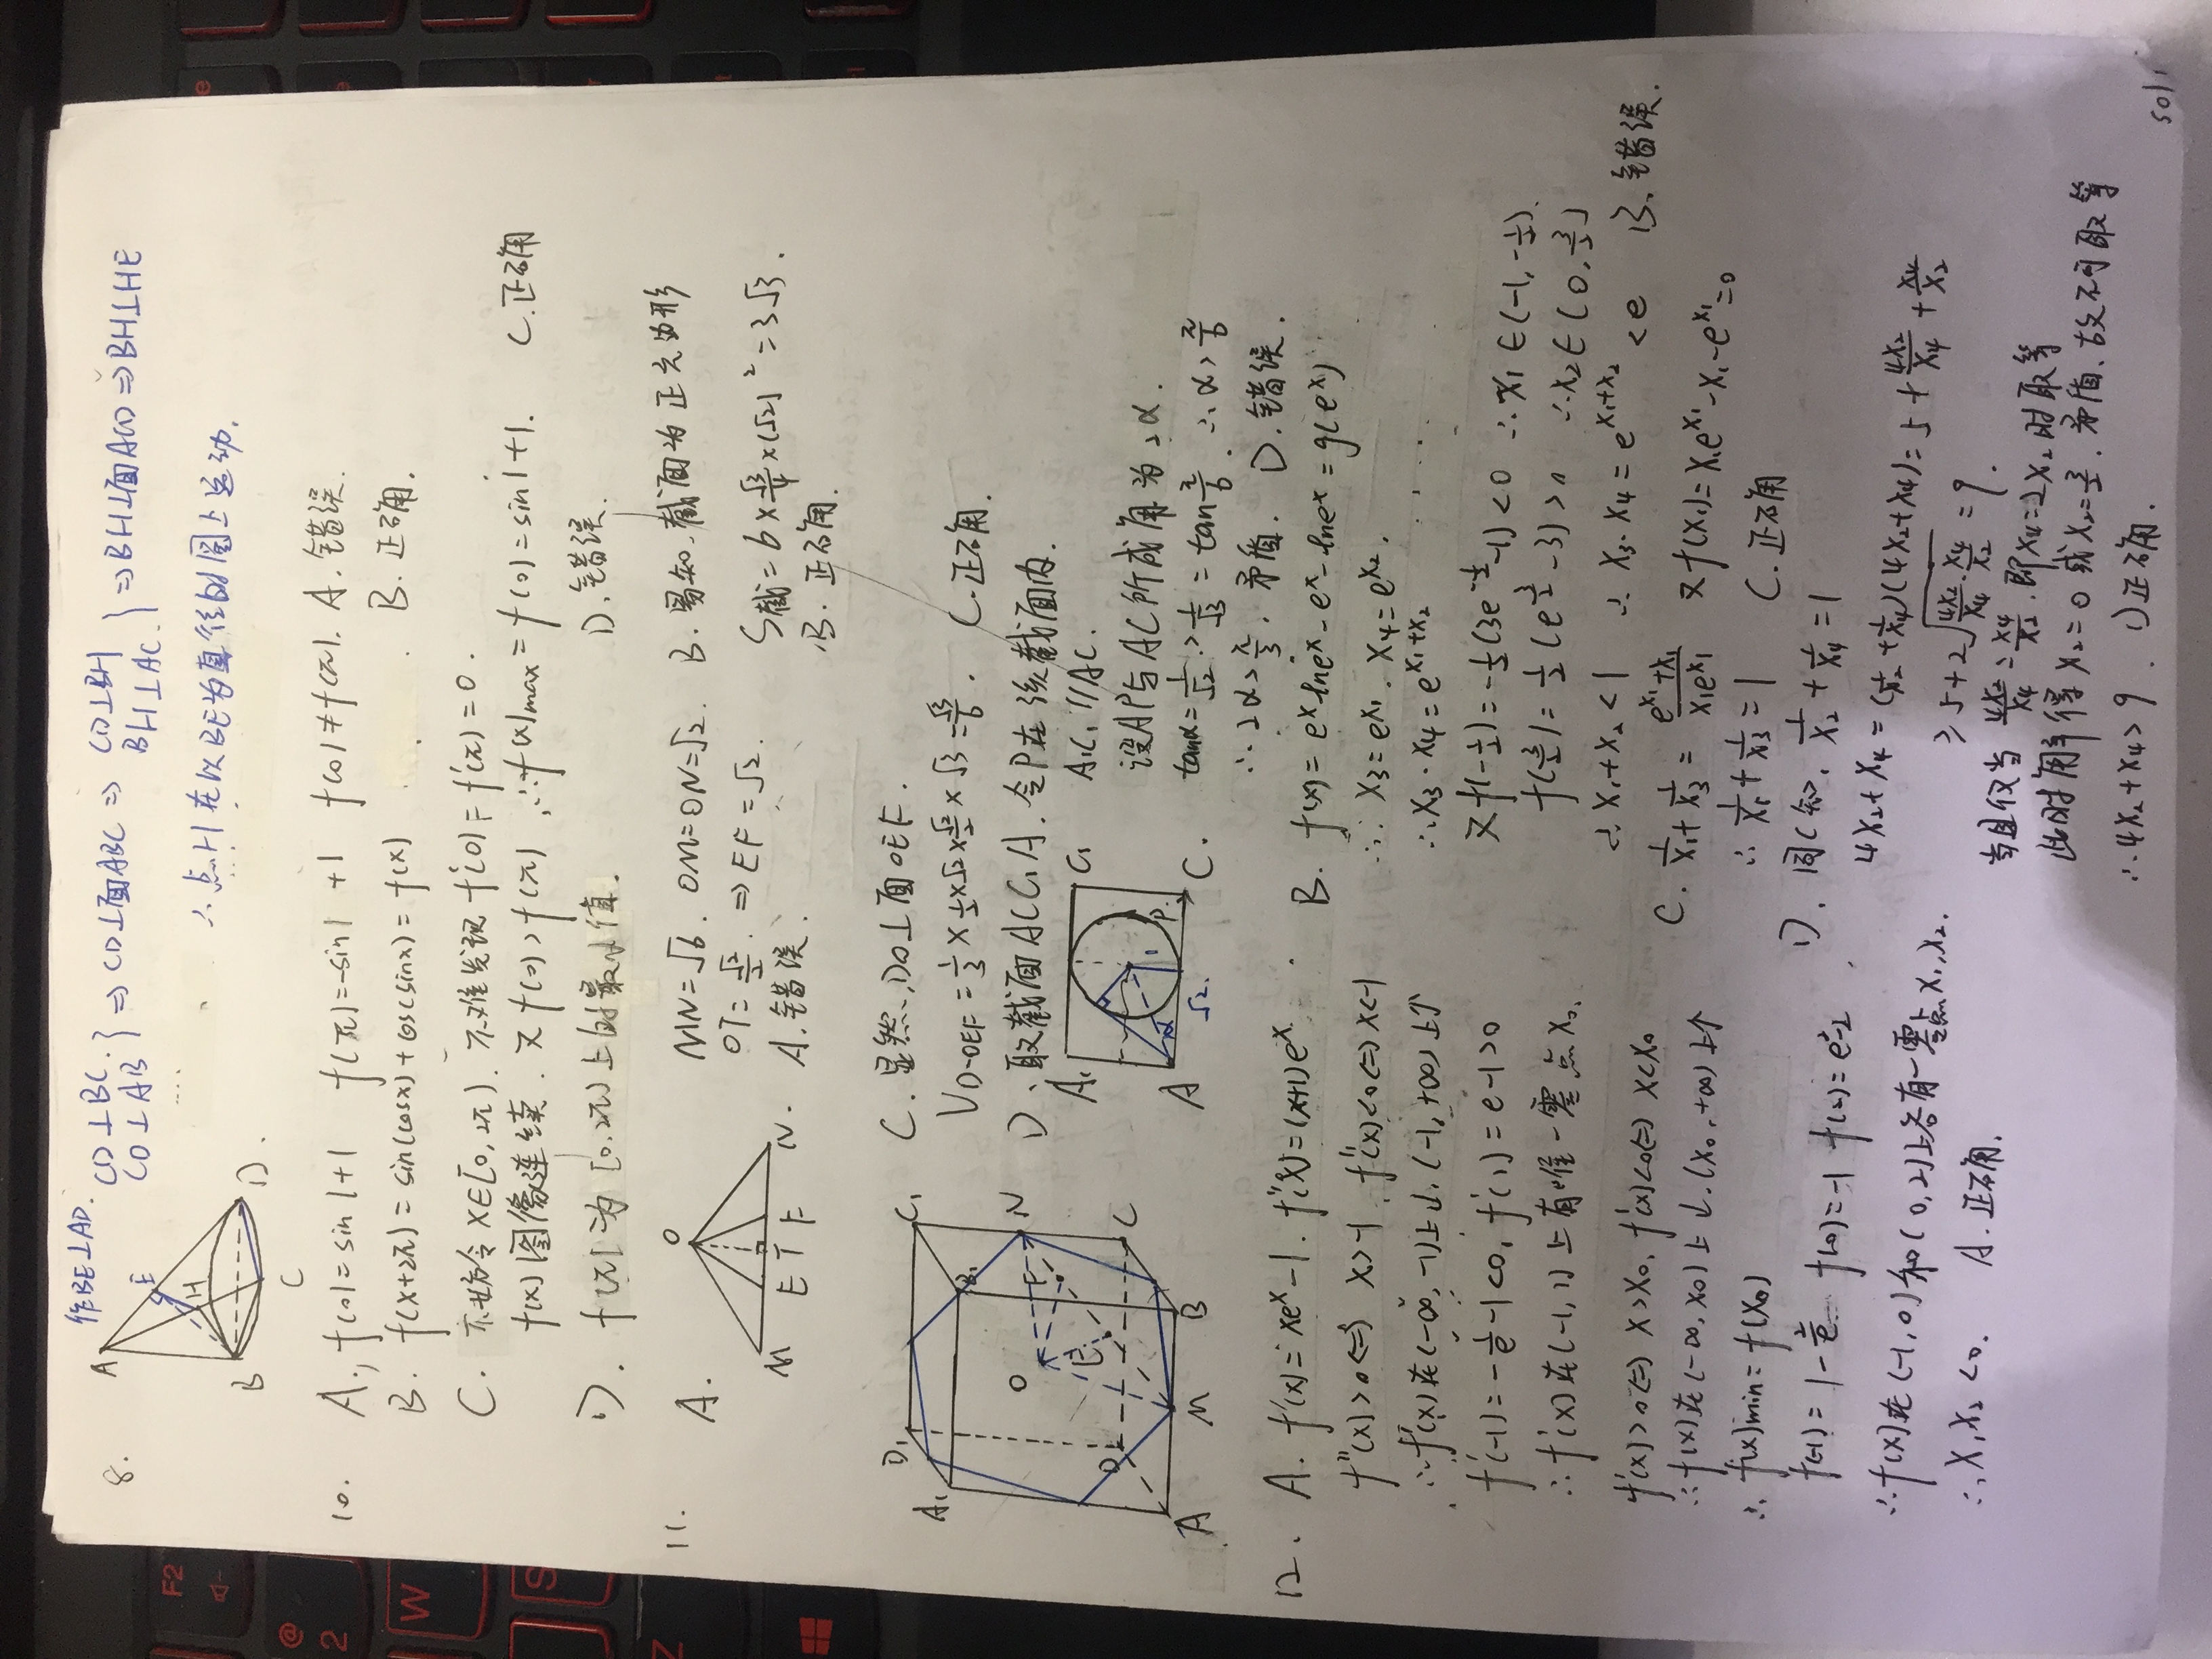 8.
作BE⊥AD.
CD⊥BC.
CD⊥AB } ⇒ CD⊥面ABC ⇒ CD⊥BH
BH⊥AC. } ⇒ BH⊥面ACD ⇒ BH⊥HE
∴点H在以BE为直径的圆上运动.
A
E
H
B
D.
C
10. A. f(0)=sin1+1 f(π)=-sin1+1 f(0)≠f(π). A.错误.
B. f(x+2π)=sin(cosx)+cos(sinx)=f(x) B.正确.
C. 不妨令x∈[0,2π). 不难发现f'(0)=f'(π)=0.
f(x)图像连续. 又f(0)>f(π) ∴f(x)max=f(0)=sin1+1. C.正确
D. f(π)为[0,2π)上的最小值. D.错误.
11. A.
O
M E T F N.
MN=√6. OM=ON=√2.
OT=√2/2. ⇒EF=√2.
A.错误.
B. 易知,截面为正六边形
S截=6×√3/4×(√2)²=3√3.
B.正确.
D₁ C₁
A₁ B₁
O F N
E
D C
A M B
C. 显然,DO⊥面OEF.
V D-OEF=1/3×1/2×√2×√2/2×√3=√3/6. C.正确.
D、取截面ACC₁A. 令P在该截面内.
A₁ C₁
α 1 P
A √2. C.
A₁C₁∥AC.
设AP与AC所成角为2α.
tanα=1/√2>1/√3=tanπ/6. ∴α>π/6
∴2α>π/3. 矛盾. D.错误.
12. A. f'(x)=xeˣ-1. f''(x)=(x+1)eˣ.
f''(x)>0⇔x>-1. f''(x)<0⇔x<-1
∴f'(x)在(-∞,-1)上↓. (-1,+∞)上↑
f'(-1)=-1/e-1<0, f'(1)=e-1>0
∴f'(x)在(-1,1)上有唯一零点x₀.
f'(x)>0⇔x>x₀. f'(x)<0⇔x<x₀
∴f(x)在(-∞,x₀)上↓. (x₀,+∞)上↑
∴f(x)min=f(x₀)
f(-1)=1-2/e f(0)=-1 f(2)=e²-2
∴f(x)在(-1,0)和(0,2)上各有一零点x₁,x₂.
∴x₁x₂<0. A.正确.
B. f(x)=eˣlneˣ-eˣ-lneˣ=g(eˣ)
∴x₃=e^x₁. x₄=e^x₂.
∴x₃·x₄=e^(x₁+x₂)
又f(-1/2)=-1/2(3e^(-1/2)-1)<0 ∴x₁∈(-1,-1/2).
f(3/2)=1/2(e^(3/2)-3)>0 ∴x₂∈(0,3/2)
∴x₁+x₂<1 ∴x₃·x₄=e^(x₁+x₂)<e B.错误.
C. 1/x₁+1/x₃=(e^x₁+x₁)/(x₁e^x₁) 又f(x₁)=x₁e^x₁-x₁-e^x₁=0
∴1/x₁+1/x₃=1 C.正确
D. 同C知, 1/x₂+1/x₄=1
4x₂+x₄=(1/x₂+1/x₄)(4x₂+x₄)=5+4x₂/x₄+x₄/x₂
≥5+2√(4x₂/x₄·x₄/x₂)=9.
当且仅当4x₂/x₄=x₄/x₂. 即x₄=2x₂时取等
此时解得x₂=0或x₂=3/2. 矛盾、故不可取等
∴4x₂+x₄>9. D正确.
F2
@
2
W
S
Z